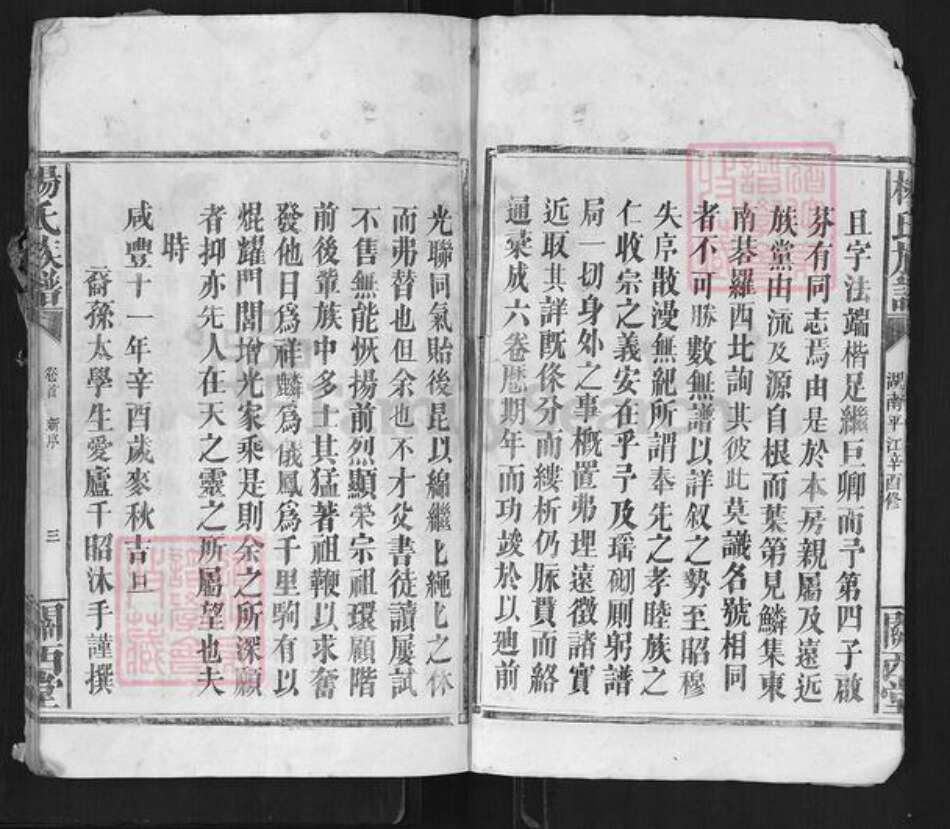 楊氏族譜
湖南平江辛酉修
關西堂
且字法端楷足繼巨卿而予第四子啟
芬有同志焉由是於本房親屬及遠近
族黨由流及源自根而葉第見鱗集東
南碁羅西北詢其彼此莫識名號相同
者不可勝數無譜以詳叙之勢至昭穆
失序散漫無紀所謂奉先之孝睦族之
仁收宗之義安在乎予及瑶砌則躬譜
局一切身外之事概置弗理遠徵諸實
近取其詳既條分而縷析仍脉貫而絡
通彙成六卷歷期年而功竣於以廸前
光聯同氣貽後昆以綿繼匕繩匕之休
而弗替也但余也不才父書徒讀屢試
不售無能恢揚前烈顯榮宗祖環顧階
前後輩族中多士其猛著祖鞭以求奮
發他日為祥麟為儀鳳為千里駒有以
焜耀門閭增光家乘是則余之所深願
者抑亦先人在天之靈之所屬望也夫
時
咸豐十一年辛酉歲麥秋吉旦
裔孫太學生愛廬千昭沐手謹撰
楊氏族譜
卷首 新序
三
關西堂